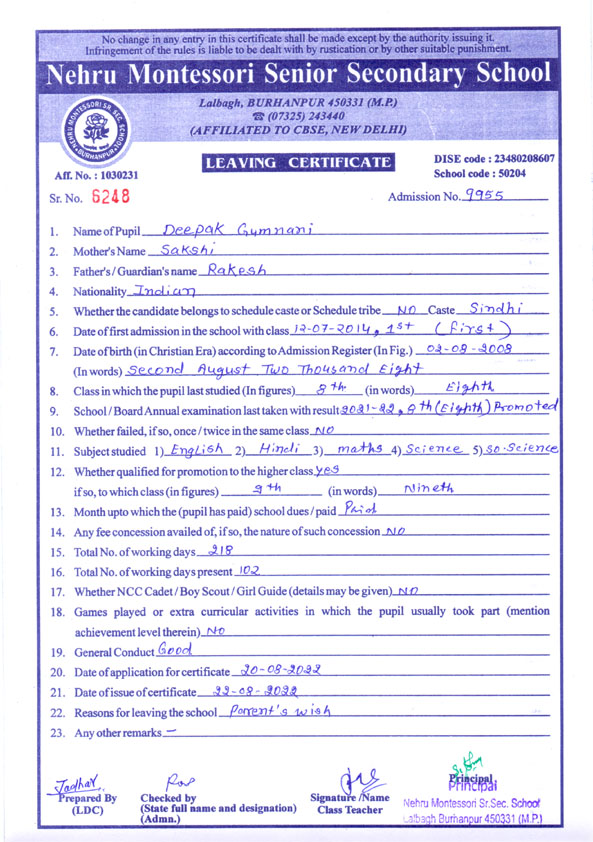 No change in any entry in this certificate shall be made except by the authority issuing it.
Infringement of the rules is liable to be dealt with by rustication or by other suitable punishment.
Nehru Montessori Senior Secondary School
Lalbagh, BURHANPUR 450331 (M.P.)
☎ (07325) 243440
(AFFILIATED TO CBSE, NEW DELHI)
NEHRU MONTESSORI SR. SEC. SCHOOL
BURHANPUR
LEAVING CERTIFICATE
DISE code : 23480208607
School code : 50204
Aff. No. : 1030231
Sr. No. 6248 Admission No. 9955
1. Name of Pupil Deepak Gumnani
2. Mother's Name Sakshi
3. Father's / Guardian's name Rakesh
4. Nationality Indian
5. Whether the candidate belongs to schedule caste or Schedule tribe NO Caste Sindhi
6. Date of first admission in the school with class 12-07-2014, 1st (first)
7. Date of birth (in Christian Era) according to Admission Register (In Fig.) 02-08-2008
(In words) Second August Two Thousand Eight
8. Class in which the pupil last studied (In figures) 8th (in words) Eighth
9. School / Board Annual examination last taken with result 2021-22, 8th (Eighth) Promoted
10. Whether failed, if so, once / twice in the same class NO
11. Subject studied 1) English 2) Hindi 3) maths 4) Science 5) so. Science
12. Whether qualified for promotion to the higher class yes
if so, to which class (in figures) 9th (in words) Nineth
13. Month upto which the (pupil has paid) school dues / paid Paid
14. Any fee concession availed of, if so, the nature of such concession NO
15. Total No. of working days 218
16. Total No. of working days present 102
17. Whether NCC Cadet / Boy Scout / Girl Guide (details may be given) NO
18. Games played or extra curricular activities in which the pupil usually took part (mention
achievement level therein) NO
19. General Conduct Good
20. Date of application for certificate 20-08-2022
21. Date of issue of certificate 22-08-2022
22. Reasons for leaving the school Parrent's wish
23. Any other remarks —
Jadhav
Prepared By
(LDC)
Checked by
(State full name and designation)
(Admn.)
Signature /Name
Class Teacher
Principal
Principal
Nehru Montessori Sr.Sec. School
Lalbagh Burhanpur 450331 (M.P.)